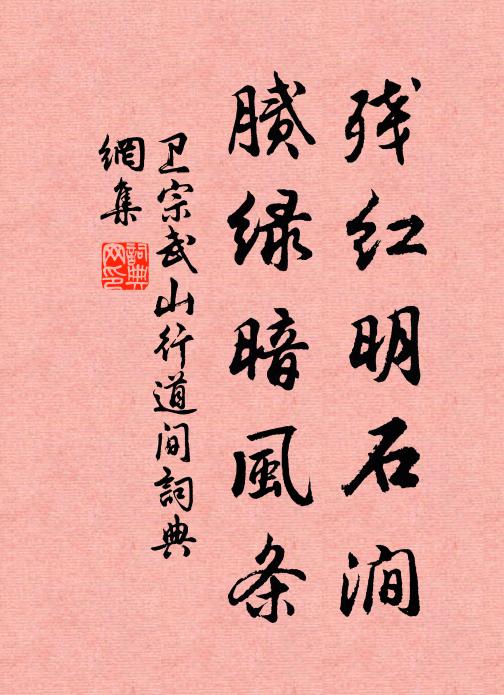 残红明石涧
膩绿暗風条
卫宗武山行道间詞典
網集
詞典
网印